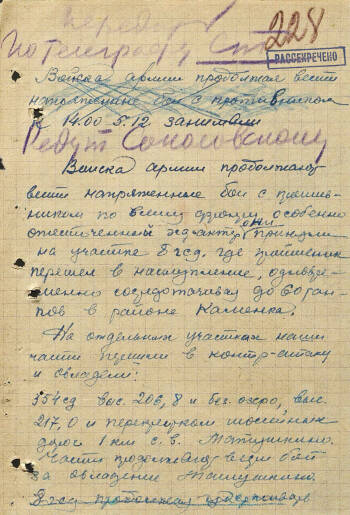 228
По телеграфу
РАССЕКРЕЧЕНО
Войска армии продолжая вести
напряженные бои с противником
к 14.00 5.12 занимали
Соколовскому
Войска армии продолжают
вести напряженные бои с против-
ником по всему фронту, особенно
ожесточенный характер они приняли
на участке 8 гсд, где противник
перешел в наступление, одновре-
менно сосредотачивая до 60 тан-
ков в районе Каменка.
На отдельных участках наши
части перешли в контр-атаку
и овладели:
354 сд выс. 206,8 и без. озеро, выс.
217,0 и перекрестком шоссейных
дорог 1 км с.в. Матушкино.
Части продолжают вести бой
за овладение Матушкино.
8 гсд продолжая удерживать